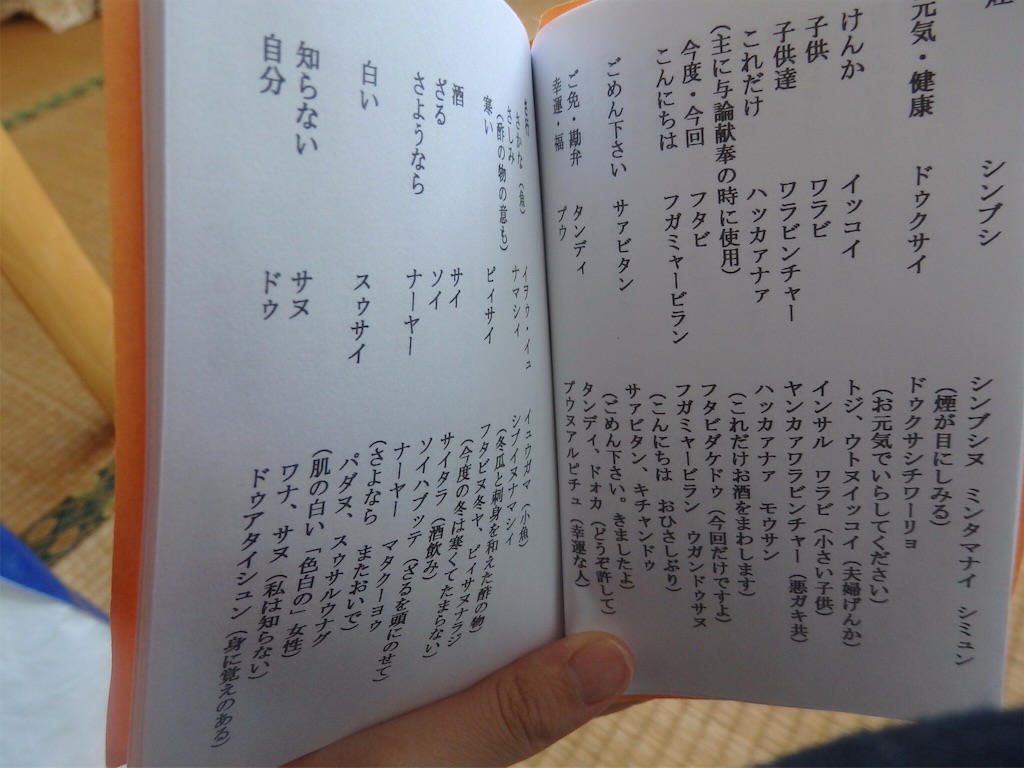 煙 シンブシ シンブシヌ ミンタマナイ シミュン
(煙が目にしみる)
元気・健康 ドゥクサイ ドゥクサシチワーリョ
(お元気でいらしてください)
けんか イッコイ トジ、ウトヌイッコイ(夫婦げんか)
子供 ワラビ インサル ワラビ(小さい子供)
子供達 ワラビンチャー ヤンカァワラビンチャー(悪ガキ共)
これだけ ハッカァナァ ハッカァナァ モウサン
(主に与論献奉の時に使用) (これだけお酒をまわします)
今度・今回 フタビ フタビダケドゥ(今回だけですよ)
こんにちは フガミャービラン フガミャービラン ウガンドゥサヌ
(こんにちは おひさしぶり)
ごめん下さい サァビタン サァビタン、キチャンドゥ
(ごめん下さい。きましたよ)
ご免・勘弁 タンディ タンディ、ドオカ(どうぞ許して)
幸運・福 プウ プウヌアルピチュ(幸運な人)
さかな(魚) イヲゥ・イュ イュウガマ(小魚)
さしみ ナマシイ シブイヌナマシイ
(酢の物の意も) (冬瓜と刺身を和えた酢の物)
寒い ピィサイ フタビヌ冬ヤ、ピィサヌナラジ
(今度の冬は寒くてたまらない)
酒 サイ サイタラ(酒飲み)
ざる ソイ ソイハブッテ(ざるを頭にのせて)
さようなら ナーヤー ナーヤー マタクーヨゥ
(さよなら またおいで)
白い スゥサイ パダヌ、スゥサルウナグ
(肌の白い「色白の」女性)
知らない サヌ ワナ、サヌ(私は知らない)
自分 ドゥ ドゥアタイシュン(身に覚えのある)